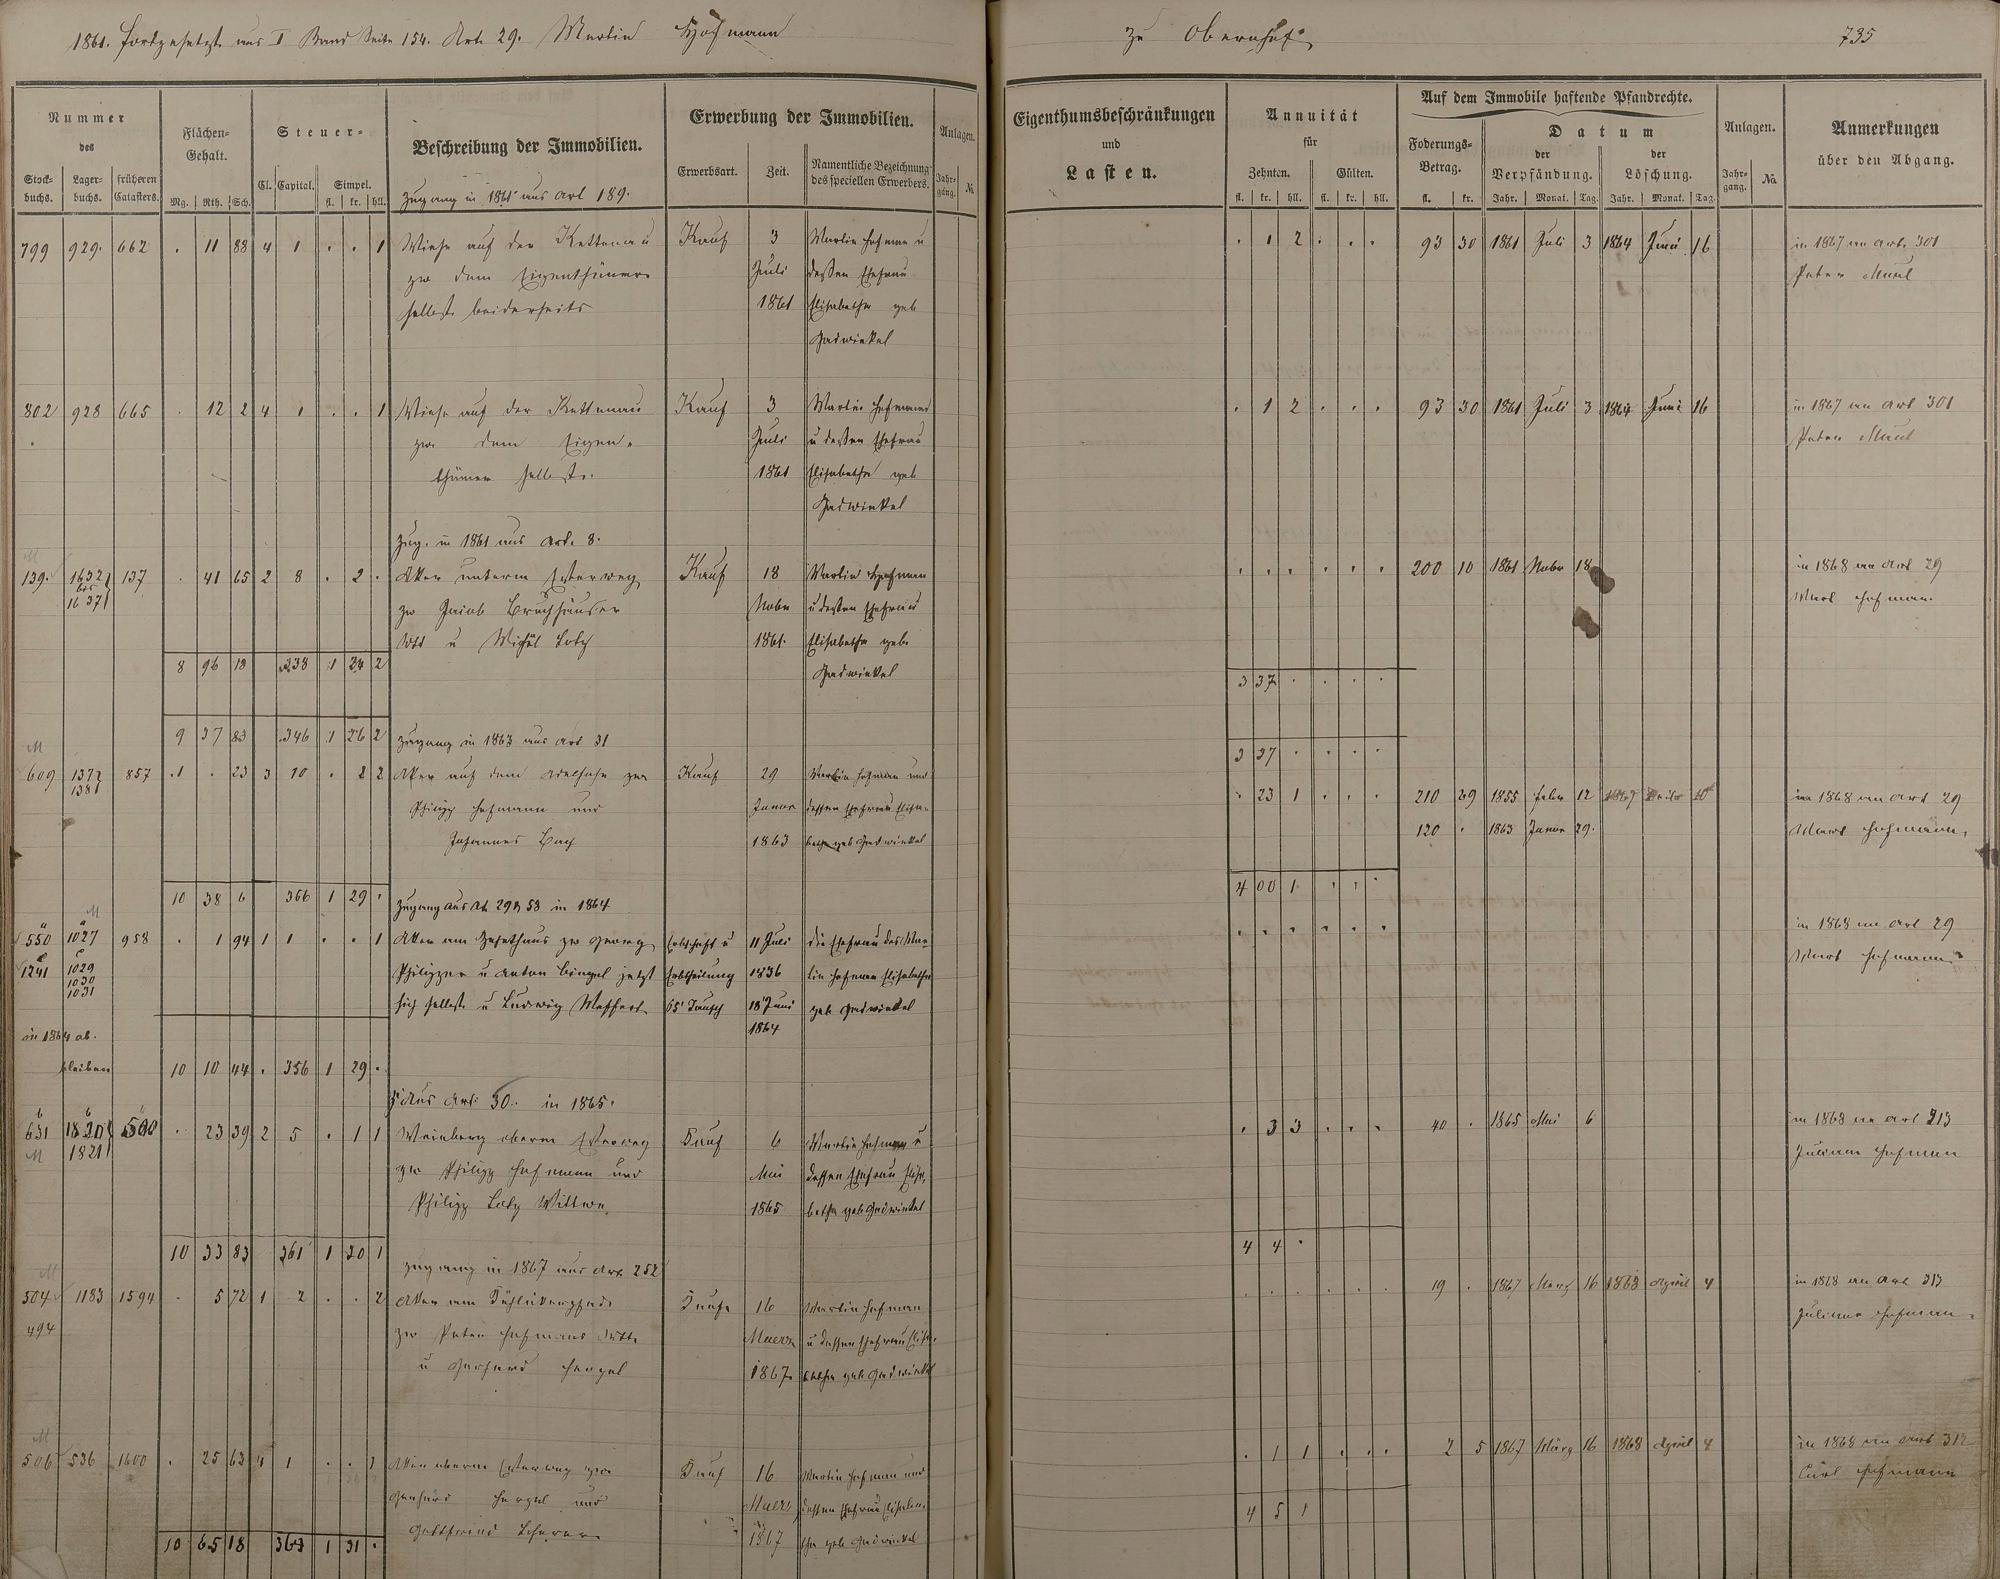 1861. fortgesetzt aus I Band Seite 154. Art. 29. Martin Hofmann
zu Obernhof.
735
Nummer
des
Stock-
buchs.
Lager-
buchs.
früheren
Catasters.
Flächen-
Gehalt.
Mg. Rth. Sch.
Steuer-
Cl. Capital. Simpel.
fl. kr. hll.
Beschreibung der Immobilien.
Erwerbung der Immobilien.
Erwerbsart. Zeit.
Namentliche Bezeichnung
des speciellen Erwerbers.
Anlagen.
Jahr-
gang.
No
Eigenthumsbeschränkungen
und
Lasten.
Annuität
für
Zehnten. Gülten.
fl. kr. hll. fl. kr. hll.
Auf dem Immobile haftende Pfandrechte.
Foderungs-
Betrag.
fl. kr.
Datum
der
Verpfändung.
der
Löschung.
Jahr. Monat. Tag. Jahr. Monat. Tag.
Anlagen.
Jahr-
gang.
No.
Anmerkungen
über den Abgang.
Zugang in 1861 aus Art 189.
799 929. 662 . 11 88 4 1 . . 1 Wiese auf der Kettenau Kauf 3 Martin Hofman u . 1 2 . . . 93 30 1861 Juli 3 1864 Juni 16 in 1867 an Art. 301
zw dem Eigenthümer Juli dessen Ehefrau Peter Maul
selbst beiderseits 1861 Elisabetha geb
Gadwinkel
802 928 665 . 12 2 4 1 . . 1 Wiese auf der Kettenau Kauf 3 Martin Hofmann . 1 2 . . . 93 30 1861 Juli 3 1864 Juni 16 in 1867 an Art 301
zw. dem Eigen- Juli u dessen Ehefrau Peter Maul
thümer selbst. 1861 Elisabetha geb
Gadwinkel
Zug. in 1861 aus Art. 8.
139. 1632 bis 1637 137 . 41 65 2 8 . 2 . Aker unterm Esterweg Kauf 18 Martin Hofman . . . . . . 200 10 1861 Nobr 18 in 1868 an Art 29
zw Jacob Bruchhäuser Nobr u dessen Ehefrau Mart Hofman.
u Michel Lotz 1861. Elisabetha geb.
8 96 18 338 1 24 2 Gadwinkel
3 37 . . . .
9 37 83 346 1 26 2 Zugang in 1863 aus Art 31
3 37 . . . .
609 137 138 857 .1 . 23 3 10 . 2 2 Aker auf dem zw Kauf 29 Martin Hofman und . 23 1 . . . 210 29 1855 Febr 12 in 1868 an Art 29
Philipp Hofmann und Januar dessen Ehefrau Elisa- 120 . 1863 Januar 29. Mart Hofmann.
Johannes Bach 1863 betha geb Gadwinkel
10 38 6 366 1 29 .
4 00 1 . . .
Zugang aus Art 29 & 58 in 1864
550 1027 958 . 1 94 1 1 . . 1 Aker am zw Georg Erbschaft u 11 Juli die Ehefrau des Mar- . . . . . . in 1868 an Art 29
1241 1029 1030 1031 Philipper u Anton Bingel jetzt Erbtheilung 1836 tin Hofman Elisabetha Mart Hofmann
sich selbst u Ludwig Meffert 65 Tausch 18 Juni geb Gadwinkel
1864
in 1864 ab.
bleiben 10 10 44 . 356 1 29 .
Z. aus Art: 30. in 1865.
631 1820 1821 500 . 23 39 2 5 . 1 1 Weinberg oberm Esterweg Kauf 6 Martin Hofman u . 3 3 . . . 40 . 1865 Mai 6 in 1868 an Art 313
zw Philipp Hofmann und Mai dessen Ehefrau Elisa- Juliane Hofman
Philipp Lotz Wittwe. 1865 betha geb Gadwinkel
10 33 83 361 1 30 1
4 4 .
Zugang in 1867 aus Art. 252
504 1183 1594 . 5 72 1 2 . . 2 Aker am Kauf 16 Martin Hofman . . . . . . 19 . 1867 Merz 16 1868 April 4 in 1868 an Art 313
494 zw Peter Hofmann Maerz u dessen Ehefrau Elisa- Juliane Hofman
u Gerhard Hergel 1867. betha geb Gadwinkel
506 536 1600 . 25 63 4 1 . . 1 Aker oberm Esterweg zw Kauf 16 Martin Hofman und . 1 1 . . . 2 5 1867 März 16 1868 April 4 in 1868 an Art 312
Gerhard Hergel und Maerz dessen Ehefrau Elisabe- Carl Hofmann
Gottfried Scherer 1867 tha geb Gadwinkel
10 65 18 363 1 31 .
4 5 1